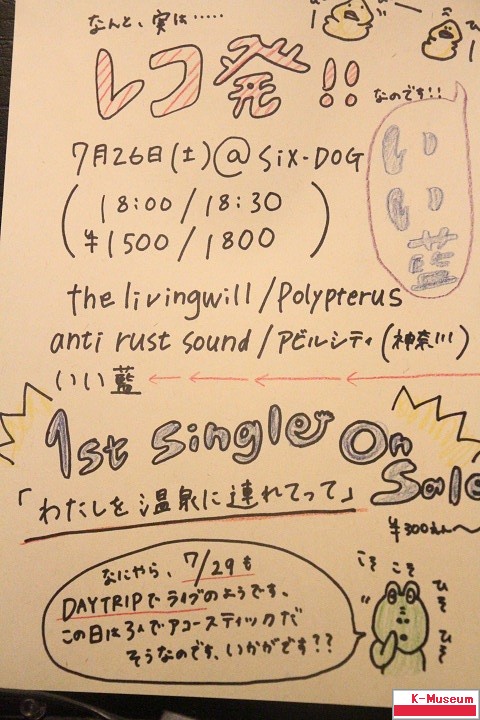 なんと、実は……
レコ発!!
なのです!!
いい藍
7月26日(土)@SiX-DOG
(18:00/18:30
¥1500/1800)
the livingwill/Polypterus
anti rust sound/アビルシティ(神奈川)
いい藍←←←←
1st single On
Sale
「わたしを温泉に連れてって」
¥300えん〜
なにやら、7/29も
DAYTRIPでライブのようです。
この日は3人でアコースティックだ
そうなのです、いかがです??
こそこそ
ひそひそ
K-Museum